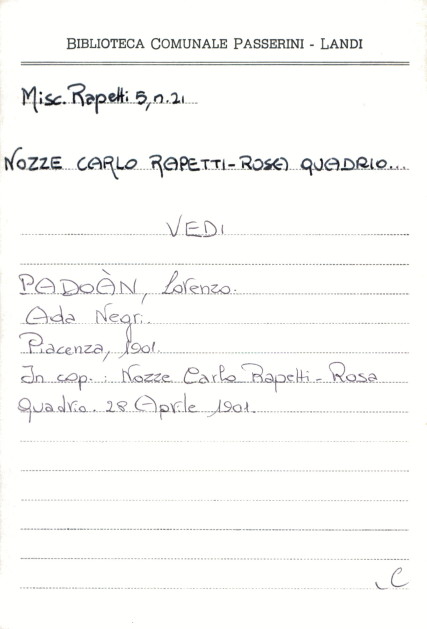 BIBLIOTECA COMUNALE PASSERINI - LANDI
Misc. Rapetti 5, n. 21
NOZZE CARLO RAPETTI-ROSA QUADRIO...
VEDI
PADOÀN, Lorenzo.
Ada Negri.
Piacenza, 1901.
In cop.: Nozze Carlo Rapetti - Rosa
Quadrio. 28 Aprile 1901.
C